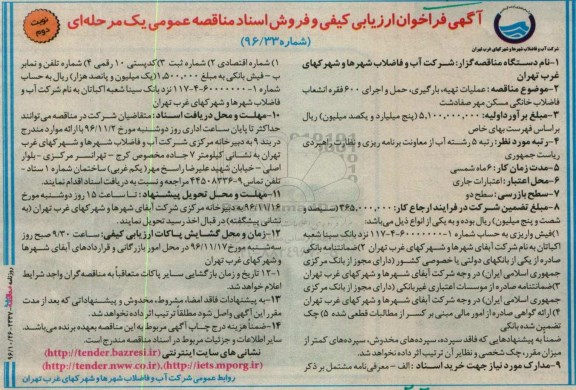 آگهی فراخوان ارزیابی کیفی و فروش اسناد مناقصه عمومی یک مرحله‌ای
(شماره ۹۶/۳۳)
نوبت دوم
شرکت آب و فاضلاب شهرها و شهرکهای غرب تهران
۱-نام دستگاه مناقصه گزار: شرکت آب و فاضلاب شهرها و شهرکهای
غرب تهران
۲-موضوع مناقصه: عملیات تهیه، بارگیری، حمل و اجرای ۶۰۰ فقره انشعاب
فاضلاب خانگی مسکن مهر صفادشت
۳-مبلغ برآورد اولیه: ۵,۱۰۰,۰۰۰,۰۰۰ (پنج میلیارد و یکصد میلیون) ریال
براساس فهرست بهای خاص
۴-رتبه مورد نظر: رتبه ۵ رشته آب از معاونت برنامه ریزی و نظارت راهبردی
ریاست جمهوری
۵-مدت زمان کار: ۶ ماه شمسی
۶-محل اعتبار: اعتبارات جاری
۷-سطح بازرسی: سطح دو
۸-مبلغ تضمین شرکت در فرایند ارجاع کار: ۳۶۵,۰۰۰,۰۰۰ (سیصد و
شصت و پنج میلیون) ریال بوده و به یکی از انواع ذیل می‌باشد:
۱)فیش واریزی به حساب شماره ۱-۶۰۰۰۰۰۰۰-۴-۱۱۷ نزد بانک سینا شعبه
اکباتان به نام شرکت آبفای شهرها و شهرکهای غرب تهران ۲)ضمانتنامه بانکی
صادره از یکی از بانکهای دولتی یا خصوصی کشور (دارای مجوز از بانک مرکزی
جمهوری اسلامی ایران) در وجه شرکت آبفای شهرها و شهرکهای غرب تهران
۳)ضمانتنامه صادره از موسسات اعتباری غیربانکی (دارای مجوز از بانک مرکزی
جمهوری اسلامی ایران) در وجه شرکت آبفای شهرها و شهرکهای غرب تهران
۴) ارائه گواهی صادره از امور مالی مبنی بر کسر از مطالبات قطعی شده ۵) چک
تضمین شده بانکی
ضمنا به پیشنهادهایی که فاقد سپرده، سپرده‌های مخدوش، سپرده‌های کمتر از
میزان مقرر، چک شخصی و نظایر آن ترتیب اثر داده نخواهد شد.
۹-مدارک مورد نیاز جهت خرید اسناد: الف – معرفی‌نامه مشتمل بر ذکر
۱) شماره اقتصادی ۲) شماره ثبت ۳) کدپستی ۱۰ رقمی ۴) شماره تلفن و نمابر
ب-فیش بانکی به مبلغ ۱,۵۰۰,۰۰۰ (یک میلیون و پانصد هزار) ریال به حساب
شماره ۱-۶۰۰۰۰۰۰۰-۴-۱۱۷ نزد بانک سینا شعبه اکباتان به نام شرکت آب و
فاضلاب شهرها و شهرکهای غرب تهران
۱۰-مهلت و محل دریافت اسناد: متقاضیان شرکت در مناقصه می‌توانند
حداکثر تا پایان ساعت اداری روز دوشنبه مورخ ۹۶/۱۱/۲ با ارائه موارد مندرج
در بند ۹ به دبیرخانه مرکزی شرکت آب و فاضلاب شهرها و شهرکهای غرب
تهران به نشانی کیلومتر ۷ جاده مخصوص کرج – تهرانسر مرکزی – بلوار
اصلی – خیابان شهید علیرضا راسخ مهر (یکم غربی) ساختمان شماره ۱ ستاد –
تلفن تماس ۹-۴۴۵۰۸۳۳۶ مراجعه و نسبت به دریافت اسناد اقدام نمایند.
۱۱-مهلت و محل تحویل پیشنهاد: تا ساعت ۱۵ روز دوشنبه مورخ
۹۶/۱۱/۱۶ به دبیرخانه مرکزی شرکت آبفای شهرها و شهرکهای غرب تهران (به
نشانی پیشگفته) در قبال اخذ رسید تحویل نمایند.
۱۲-زمان و محل گشایش پاکات ارزیابی کیفی: ساعت ۹/۳۰ صبح روز
سه‌شنبه مورخ ۹۶/۱۱/۱۷ در محل امور بازرگانی و قراردادهای آبفای شهرها
و شهرکهای غرب تهران
۱-۱۲ تاریخ و زمان بازگشایی سایر پاکات متعاقباً به مناقصه‌گران واجد شرایط
اعلام خواهد شد.
۱۳-به پیشنهادات فاقد امضا، مشروط، مخدوش و پیشنهاداتی که بعد از مدت
مقرر این آگهی واصل شود مطلقاً ترتیب اثر داده نخواهد شد.
۱۴-ضمناً هزینه درج چاپ آگهی مربوط به این مناقصه بعهده برنده می‌باشد.
سایر اطلاعات و جزئیات مربوط در اسناد مناقصه مندرج است.
نشانی های سایت اینترنتی (http://tender.bazresi.ir)
(http://tender.nww.co.ir)،(http://iets.mporg.ir)
روابط عمومی شرکت آب و فاضلاب شهرها و شهرکهای غرب تهران